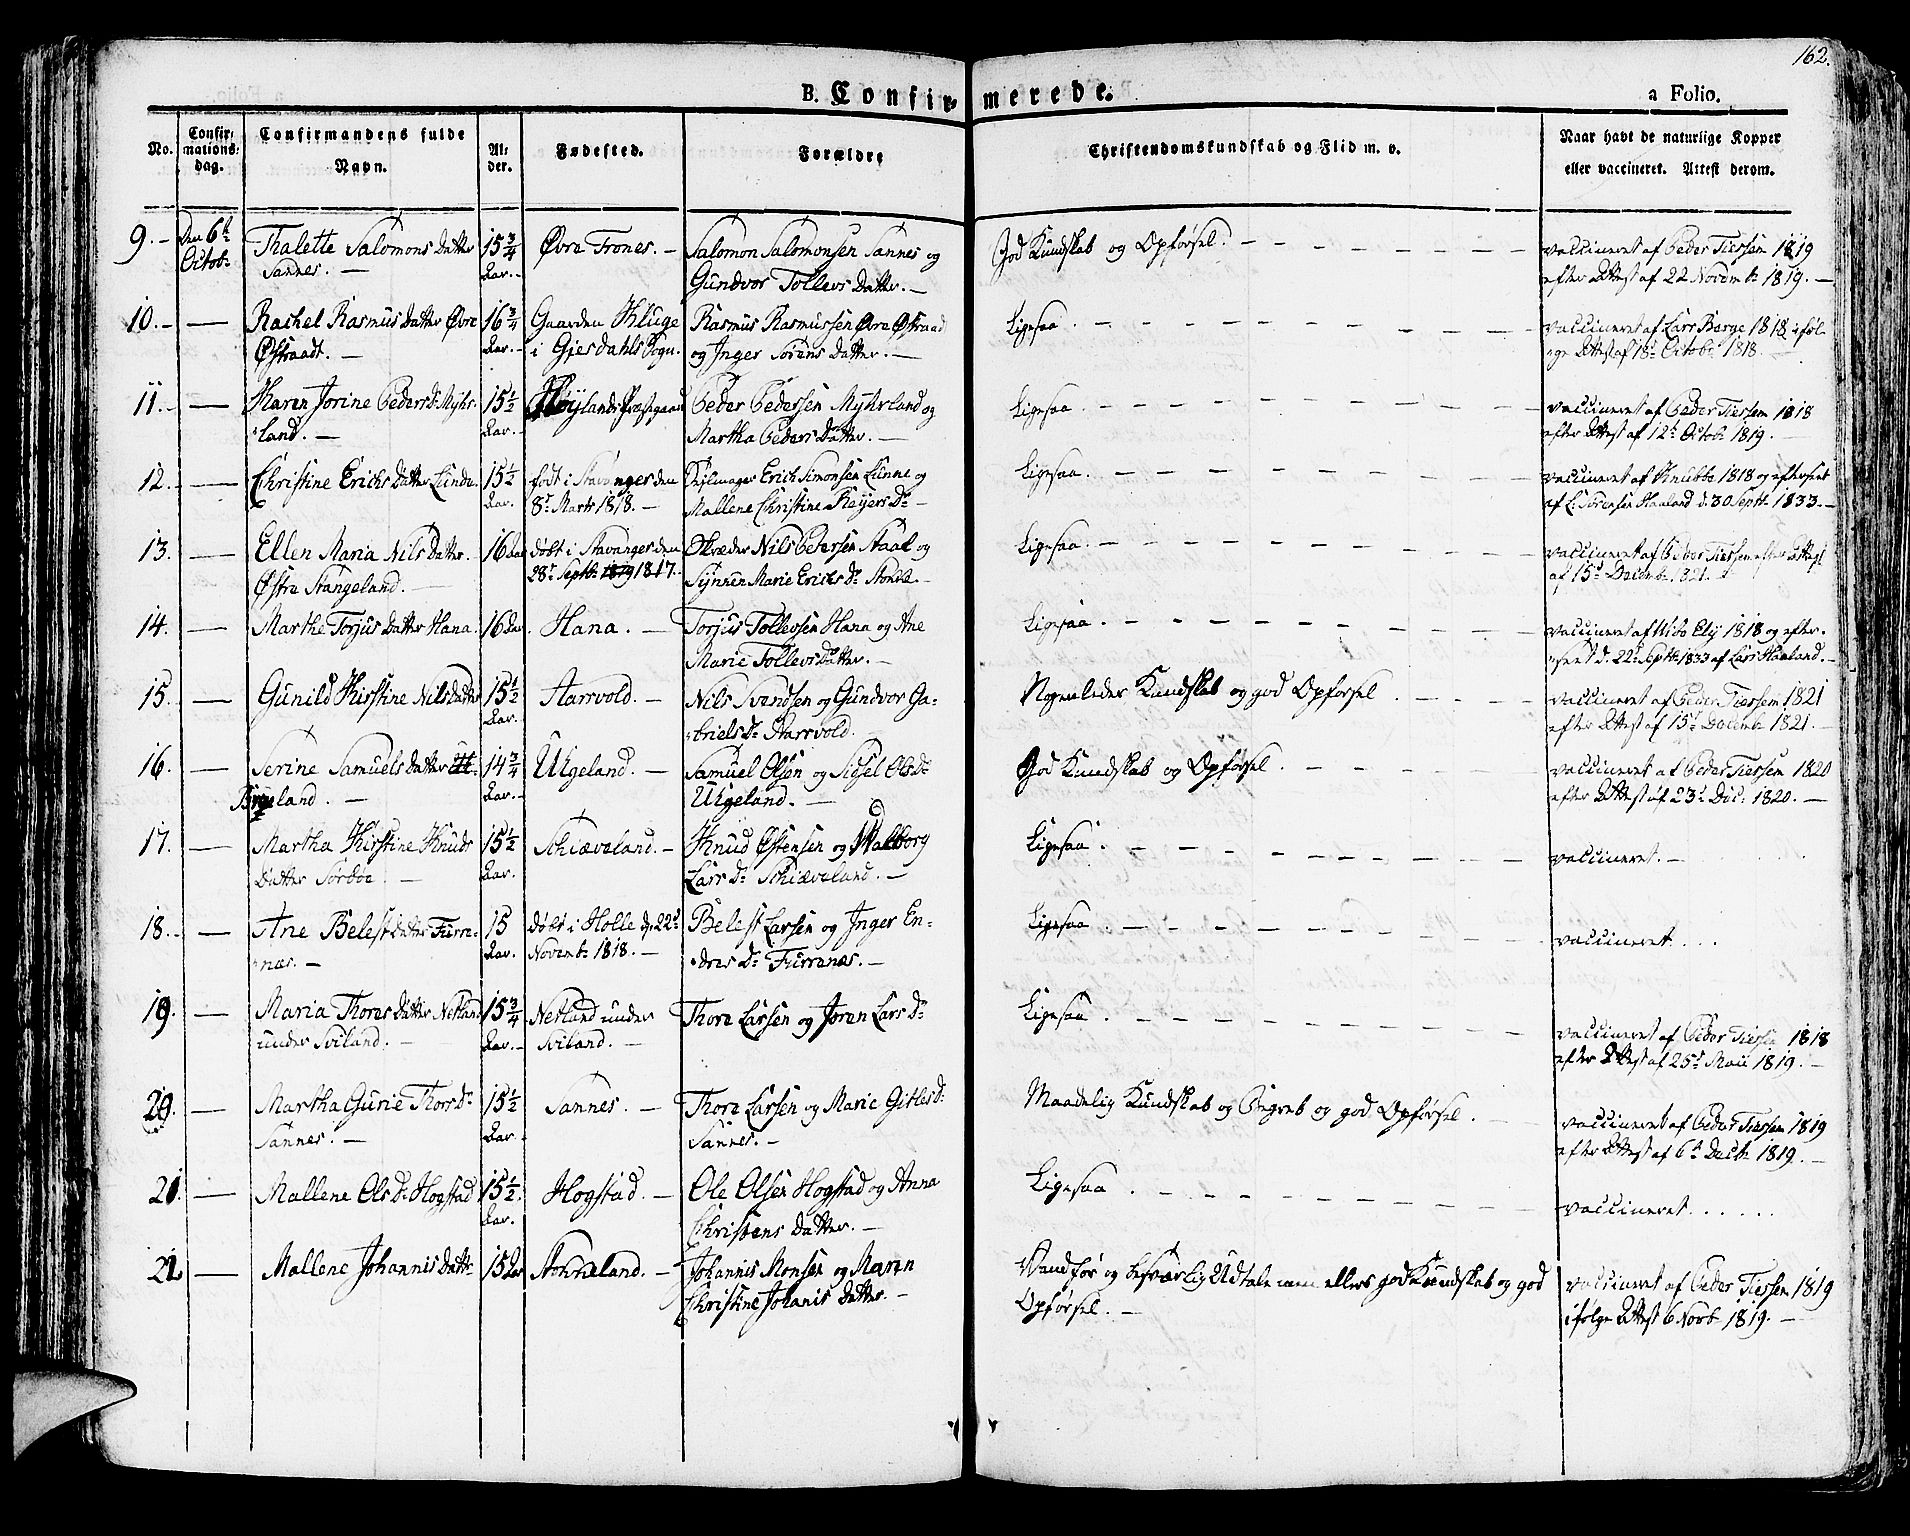 162.
B. Confir- merede.
a Folio.
No.
Confir-
mations-
dag.
Confirmandens fulde
Navn.
Al-
der.
Fødested.
Forældre
Christendomskundskab og Flid m. v.
Naar havt de naturlige Kopper
eller vaccineret. Attest derom.
9. - Den 6te Thalette Salomons Datter 15 3/4 Øvre Trones. - Salomon Salomonsen Sannes og God Kundskab og Opførsel. vaccineret af Peder Tiessem 1819
Octob: Sannes. - Aar. - Gundvor Tollevs Datter. - efter Attest af 22 Novemb: 1819. -
10. - - Rachel Rasmus Datter Øvre 16 3/4 Gaarden Kluge Rasmus Rasmussen Øvre Østraad Ligesaa. vaccineret af Lars Borge 1818 iføl-
Østraadt. - Aar. - i Gjesdahls Sogn. og Inger Sørens Datter. - ge Attest af 18t Octob: 1818.
11. - - Karen Jorine Peders D: Myhr- 15 1/2 Høylands Præstegaard Peder Pedersen Myhrland og Ligesaa. vaccineret af Peder Tiessem 1818
land. - Aar. - Martha Peders Datter. - efter Attest af 12te Octob: 1819. -
12. - - Christine Erichs Datter Lunde. 15 1/2 født i Stavanger den Erich Simonsen Lunne og Ligesaa. vaccineret af Knubbe 1818 og efterseet
Aar. 8t Marts 1818. - Mallene Christine Reyers D: - af L: Sørensen Haaland d: 30 Septb: 1833. -
13. - Ellen Maria Nils Datter. 16 Aar døbt i Stavanger den Skræder Nils Petersen Staal og Ligesaa. vaccineret af Peder Tiessem efter Attest
Østre Stangeland. - 28t Septb: 1819 1817. Synnen Marie Erichs D: - af 15t Decemb: 1821.
14. - Marthe Torjus Datter Hana. 16 Aar. Hana. - Torjus Tollevsen Hana og Ane Ligesaa. vaccineret af Ely 1818 og efter-
Marie Tollevs Datter. - seet d. 22t Septb: 1833 af Lars Haaland. -
15. - Gunild Kirstine Nils Datter 15 1/2 Aarrvold. - Nils Svendsen og Gundvor Ga- Nogenledes Kundskab og god Opførsel vaccineret af Peder Tiessem 1821
Aar. briels D: Aarrvold. efter Attest af 15t Decemb: 1821. -
16. - Serine Samuels Datter 14 3/4 Uigeland. - Samuel Olsen og Sigsel Ols D: God Kundskab og Opførsel. vaccineret af Peder Tiessem 1820
Aar. - Uigeland. - efter Attest af 23t Dec: 1820. -
17. - Martha Kirstine Knuds 15 1/2 Schiæveland. - Knud Østensen og Walborg Ligesaa. vaccineret. -
Datter Sørboe. - Aar. Lars D: Schiæveland. -
18. - - Ane Belest Datter Furre- 15 døbt i Holle d. 22t Belest Larsen og Inger En- Ligesaa vaccineret. . . .
næs. - Aar. Novemb: 1818. - dres D: Furrenæs. -
19. - Maria Thores Datter Netland 15 3/4 Netland under Thore Larsen og Joren Lars D: Ligesaa. vaccineret af Peder Tiessem 1818
under Sviland. - Aar. - Sviland. - efter Attest af 25t Maii 1819. -
20. - Martha Gurie Thors D: 15 1/2 Sannes. - Thore Larsen og Marie Gitles D: Maadelig Kundskab og Begreb og god Opførsel. vaccineret af Peder Tiessem 1819
Sannes. - Aar. - Sannes. - efter Attest af 6te Decb: 1819. -
21. - Mallene Ols D: Hogstad 15 1/2 Hogstad. - Ole Olsen Hogstad og Anna Ligesaa. vaccineret. . . . . .
Aar. Christens Datter. -
22 - Mallene Johannis Datter 15 Aar Stokkeland. - Johannis Monsen og Maren Vandfør og besværlig Udtale men ellers god Kundskab og god vaccineret af Peder Tiessem 1819
Christine Johanis Datter. - Opførsel. - ifølge Attest 6 Novb: 1819. -